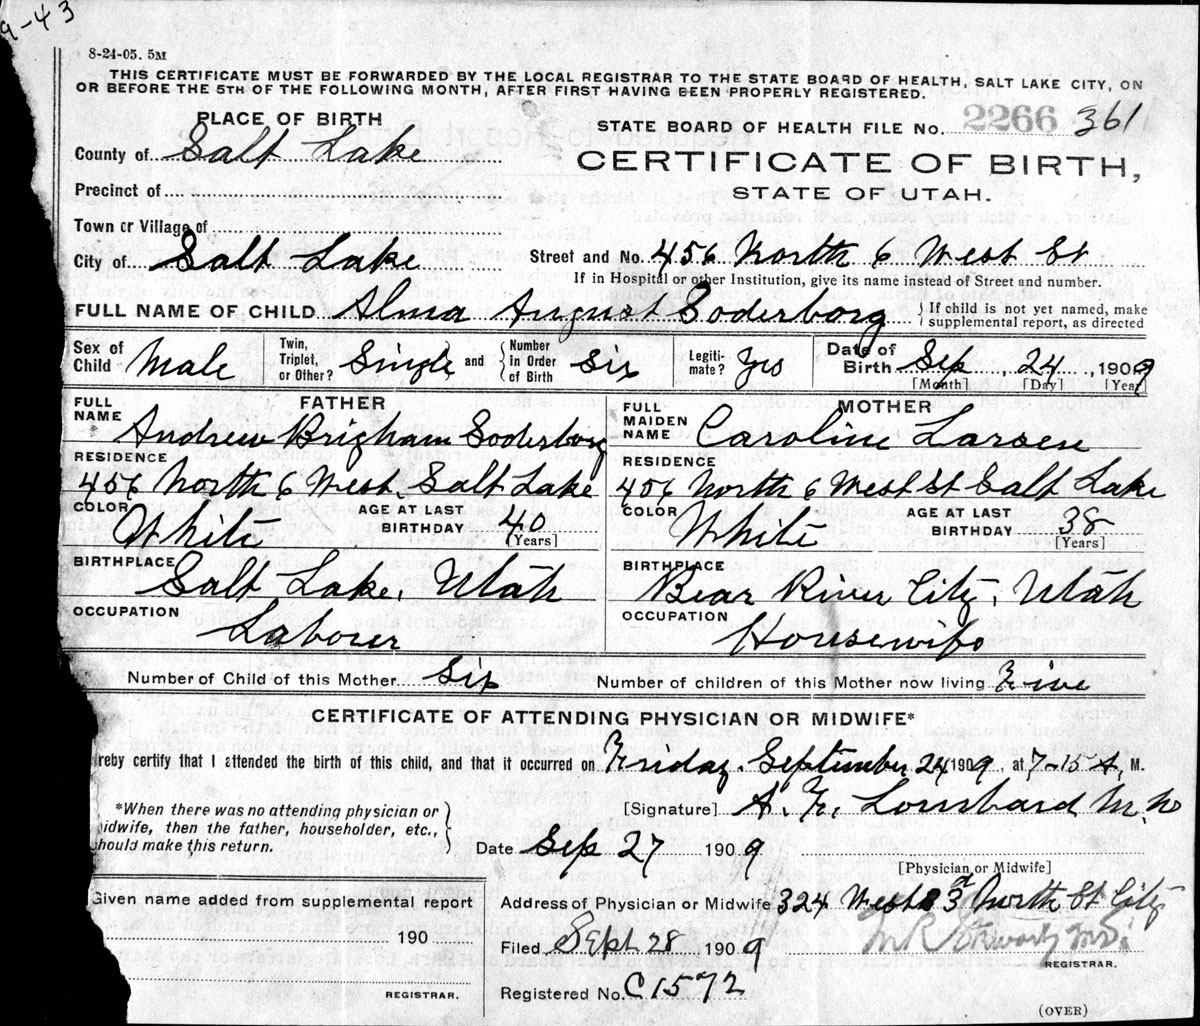 9-43
8-24-05. 5M
THIS CERTIFICATE MUST BE FORWARDED BY THE LOCAL REGISTRAR TO THE STATE BOARD OF HEALTH, SALT LAKE CITY, ON
OR BEFORE THE 5TH OF THE FOLLOWING MONTH, AFTER FIRST HAVING BEEN PROPERLY REGISTERED.
PLACE OF BIRTH
STATE BOARD OF HEALTH FILE No. 2266 361
County of Salt Lake
CERTIFICATE OF BIRTH,
STATE OF UTAH.
Precinct of
Town or Village of
City of Salt Lake Street and No. 456 North 6 West St
If in Hospital or other Institution, give its name instead of Street and number.
FULL NAME OF CHILD Alma August Soderborg { If child is not yet named, make supplemental report, as directed
Sex of Child Male Twin, Triplet, or Other? Single and Number in Order of Birth Six Legiti-mate? Yes Date of Birth Sep 24, 1909
[Month] [Day] [Year]
FATHER MOTHER
FULL NAME Andrew Brigham Soderborg FULL MAIDEN NAME Caroline Larsen
RESIDENCE RESIDENCE
456 North 6 West, Salt Lake 456 North 6 West St Salt Lake
COLOR White AGE AT LAST BIRTHDAY 40 [Years] COLOR White AGE AT LAST BIRTHDAY 38 [Years]
BIRTHPLACE BIRTHPLACE
Salt Lake, Utah Bear River City, Utah
OCCUPATION OCCUPATION
Labourer Housewife
Number of Child of this Mother Six Number of children of this Mother now living Five
CERTIFICATE OF ATTENDING PHYSICIAN OR MIDWIFE*
reby certify that I attended the birth of this child, and that it occurred on Friday, September 24 1909, at 7-15 A, M.
*When there was no attending physician or
idwife, then the father, householder, etc.,
hould make this return.
[Signature] A. F. Lombard M.D
Date Sep 27 1909
[Physician or Midwife]
Given name added from supplemental report
Address of Physician or Midwife 324 West 3rd North St City
190
Filed Sept. 28 1909
REGISTRAR.
REGISTRAR.
Registered No. C1572
(OVER)